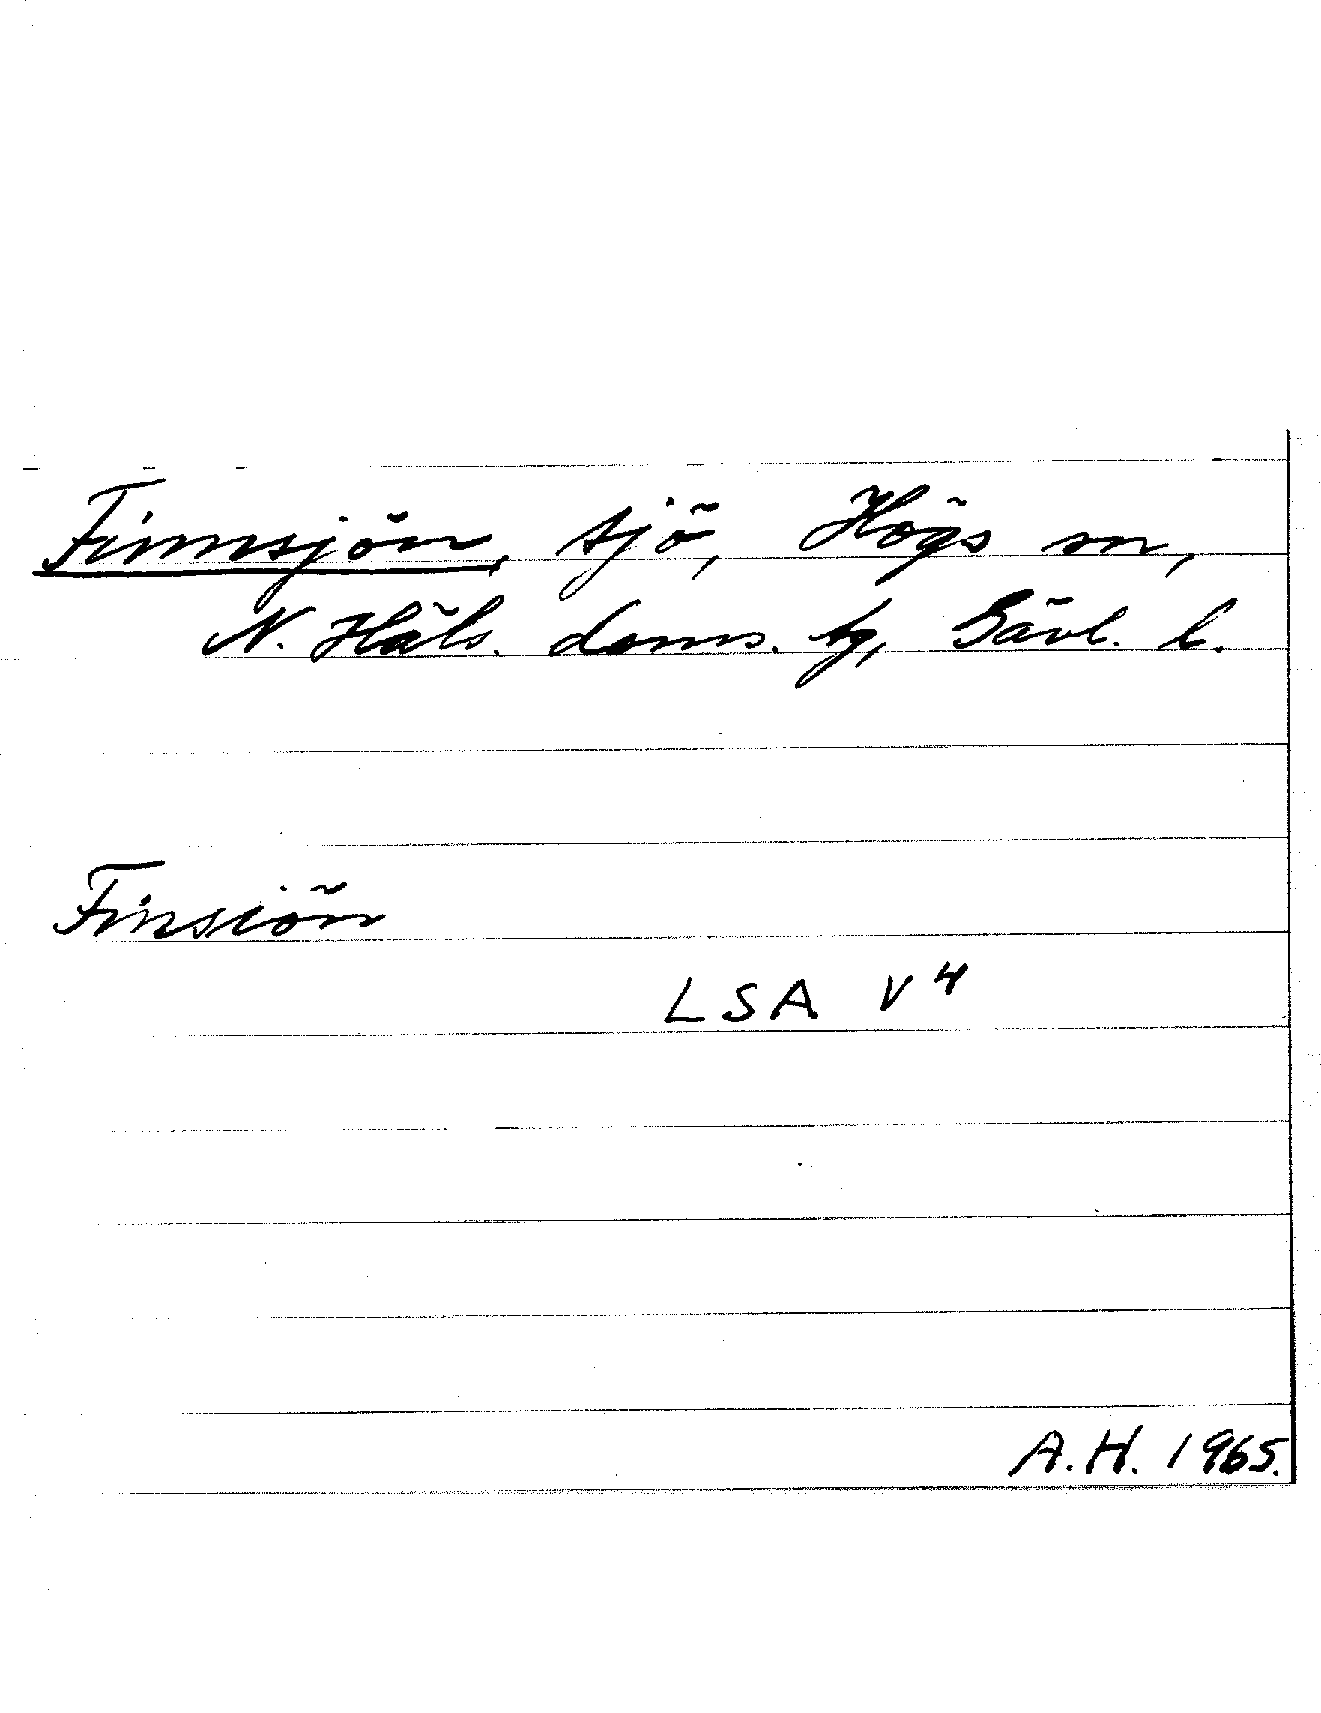 Finnsjön, sjö, Högs sn,
N. Häls. doms. tg, Gävl. l.
Finsiön
LSA V 4
A.H. 1965.